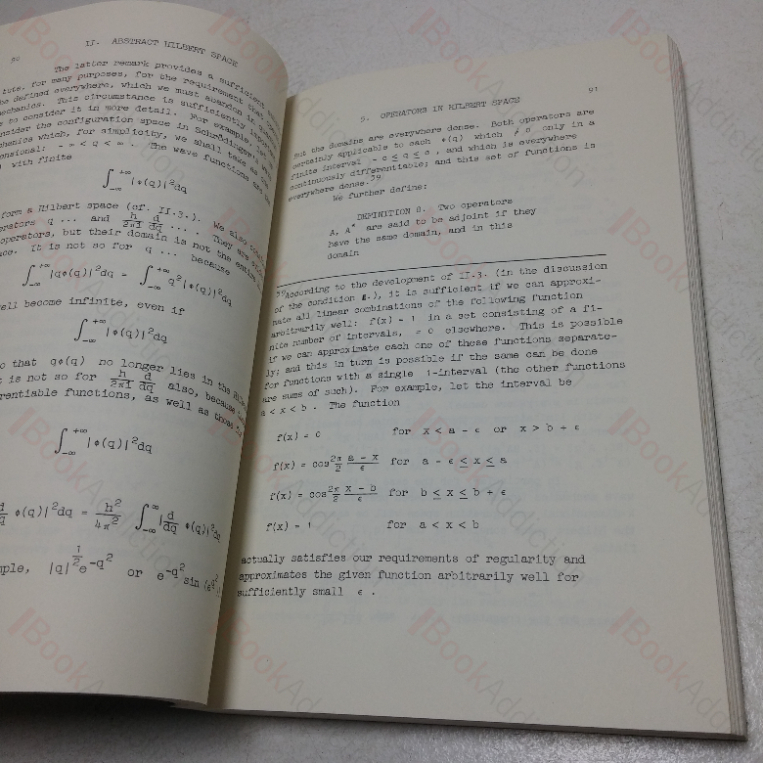 90
II. ABSTRACT HILBERT SPACE
The latter remark provides a sufficient
tute, for many purposes, for the requirement that
be defined everywhere, which we must abandon in
mechanics. This circumstance is sufficiently important
to consider it in more detail. For example, let
consider the configuration space in Schrödinger's wave
mechanics which, for simplicity, we shall take as
ensional: - ∞ < q < ∞ . The wave functions are
) with finite
∫_{-∞}^{+∞} |φ(q)|²dq
form a Hilbert space (cf. II.3.). We also
operators q ... and h/2πi d/dq ... . They are
operators, but their domain is not the entire
ace. It is not so for q ... because
∫_{-∞}^{+∞} |qφ(q)|²dq = ∫_{-∞}^{+∞} q²|φ(q)|²dq
well become infinite, even if
∫_{-∞}^{+∞} |φ(q)|²dq
so that qφ(q) no longer lies in the
t is not so for h/2πi d/dq also, because
rentiable functions, as well as those for
∫_{-∞}^{+∞} |φ(q)|²dq
φ(q)|²dq = h²/4π² ∫_{-∞}^{+∞} |d/dq φ(q)|²dq
mple, |q|^{1/2}e^{-q²} or e^{-q²} sin (e^{q²})
91
5. OPERATORS IN HILBERT SPACE
But the domains are everywhere dense. Both operators are
certainly applicable to each φ(q) which ≠ 0 only in a
finite interval - c ≤ q ≤ c , and which is everywhere
continuously differentiable; and this set of functions is
everywhere dense.⁵⁹
We further define:
DEFINITION 8. Two operators
A, A* are said to be adjoint if they
have the same domain, and in this
domain
⁵⁹According to the development of II.3. (in the discussion
of the condition E.), it is sufficient if we can approxi-
mate all linear combinations of the following function
arbitrarily well: f(x) = 1 in a set consisting of a fi-
nite number of intervals, = 0 elsewhere. This is possible
if we can approximate each one of these functions separate-
ly; and this in turn is possible if the same can be done
for functions with a single 1-interval (the other functions
are sums of such). For example, let the interval be
a < x < b . The function
f(x) = 0 for x < a - ε or x > b + ε
f(x) = cos² π/2 (a - x)/ε for a - ε ≤ x ≤ a
f(x) = cos² π/2 (x - b)/ε for b ≤ x ≤ b + ε
f(x) = 1 for a < x < b
actually satisfies our requirements of regularity and
approximates the given function arbitrarily well for
sufficiently small ε .
BookAddiction